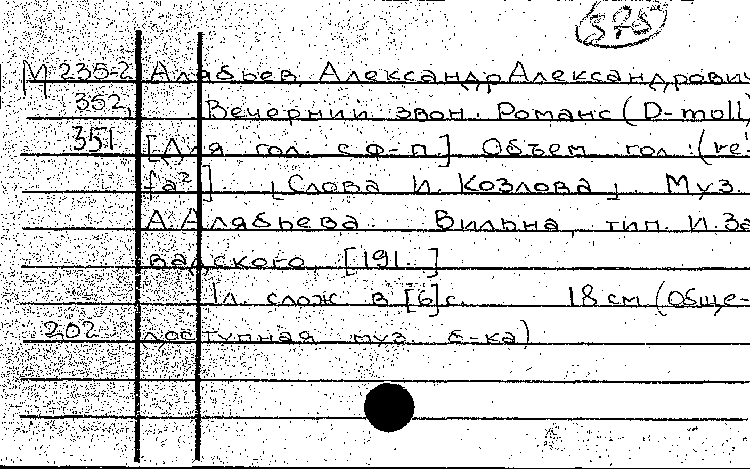 575
М 235-2 Алябьев, Александр Александрович
352, Вечерний звон. Романс (D-moll)
351 [Для гол. с ф-п.] Объем гол.: (re¹-
fa²] [Слова И. Козлова] Муз.
А. Алябьева. Вильна, тип. И. За
вадского, [191.]
1л. слож в [6]с. 18 см (Обще-
202 доступная муз. б-ка)